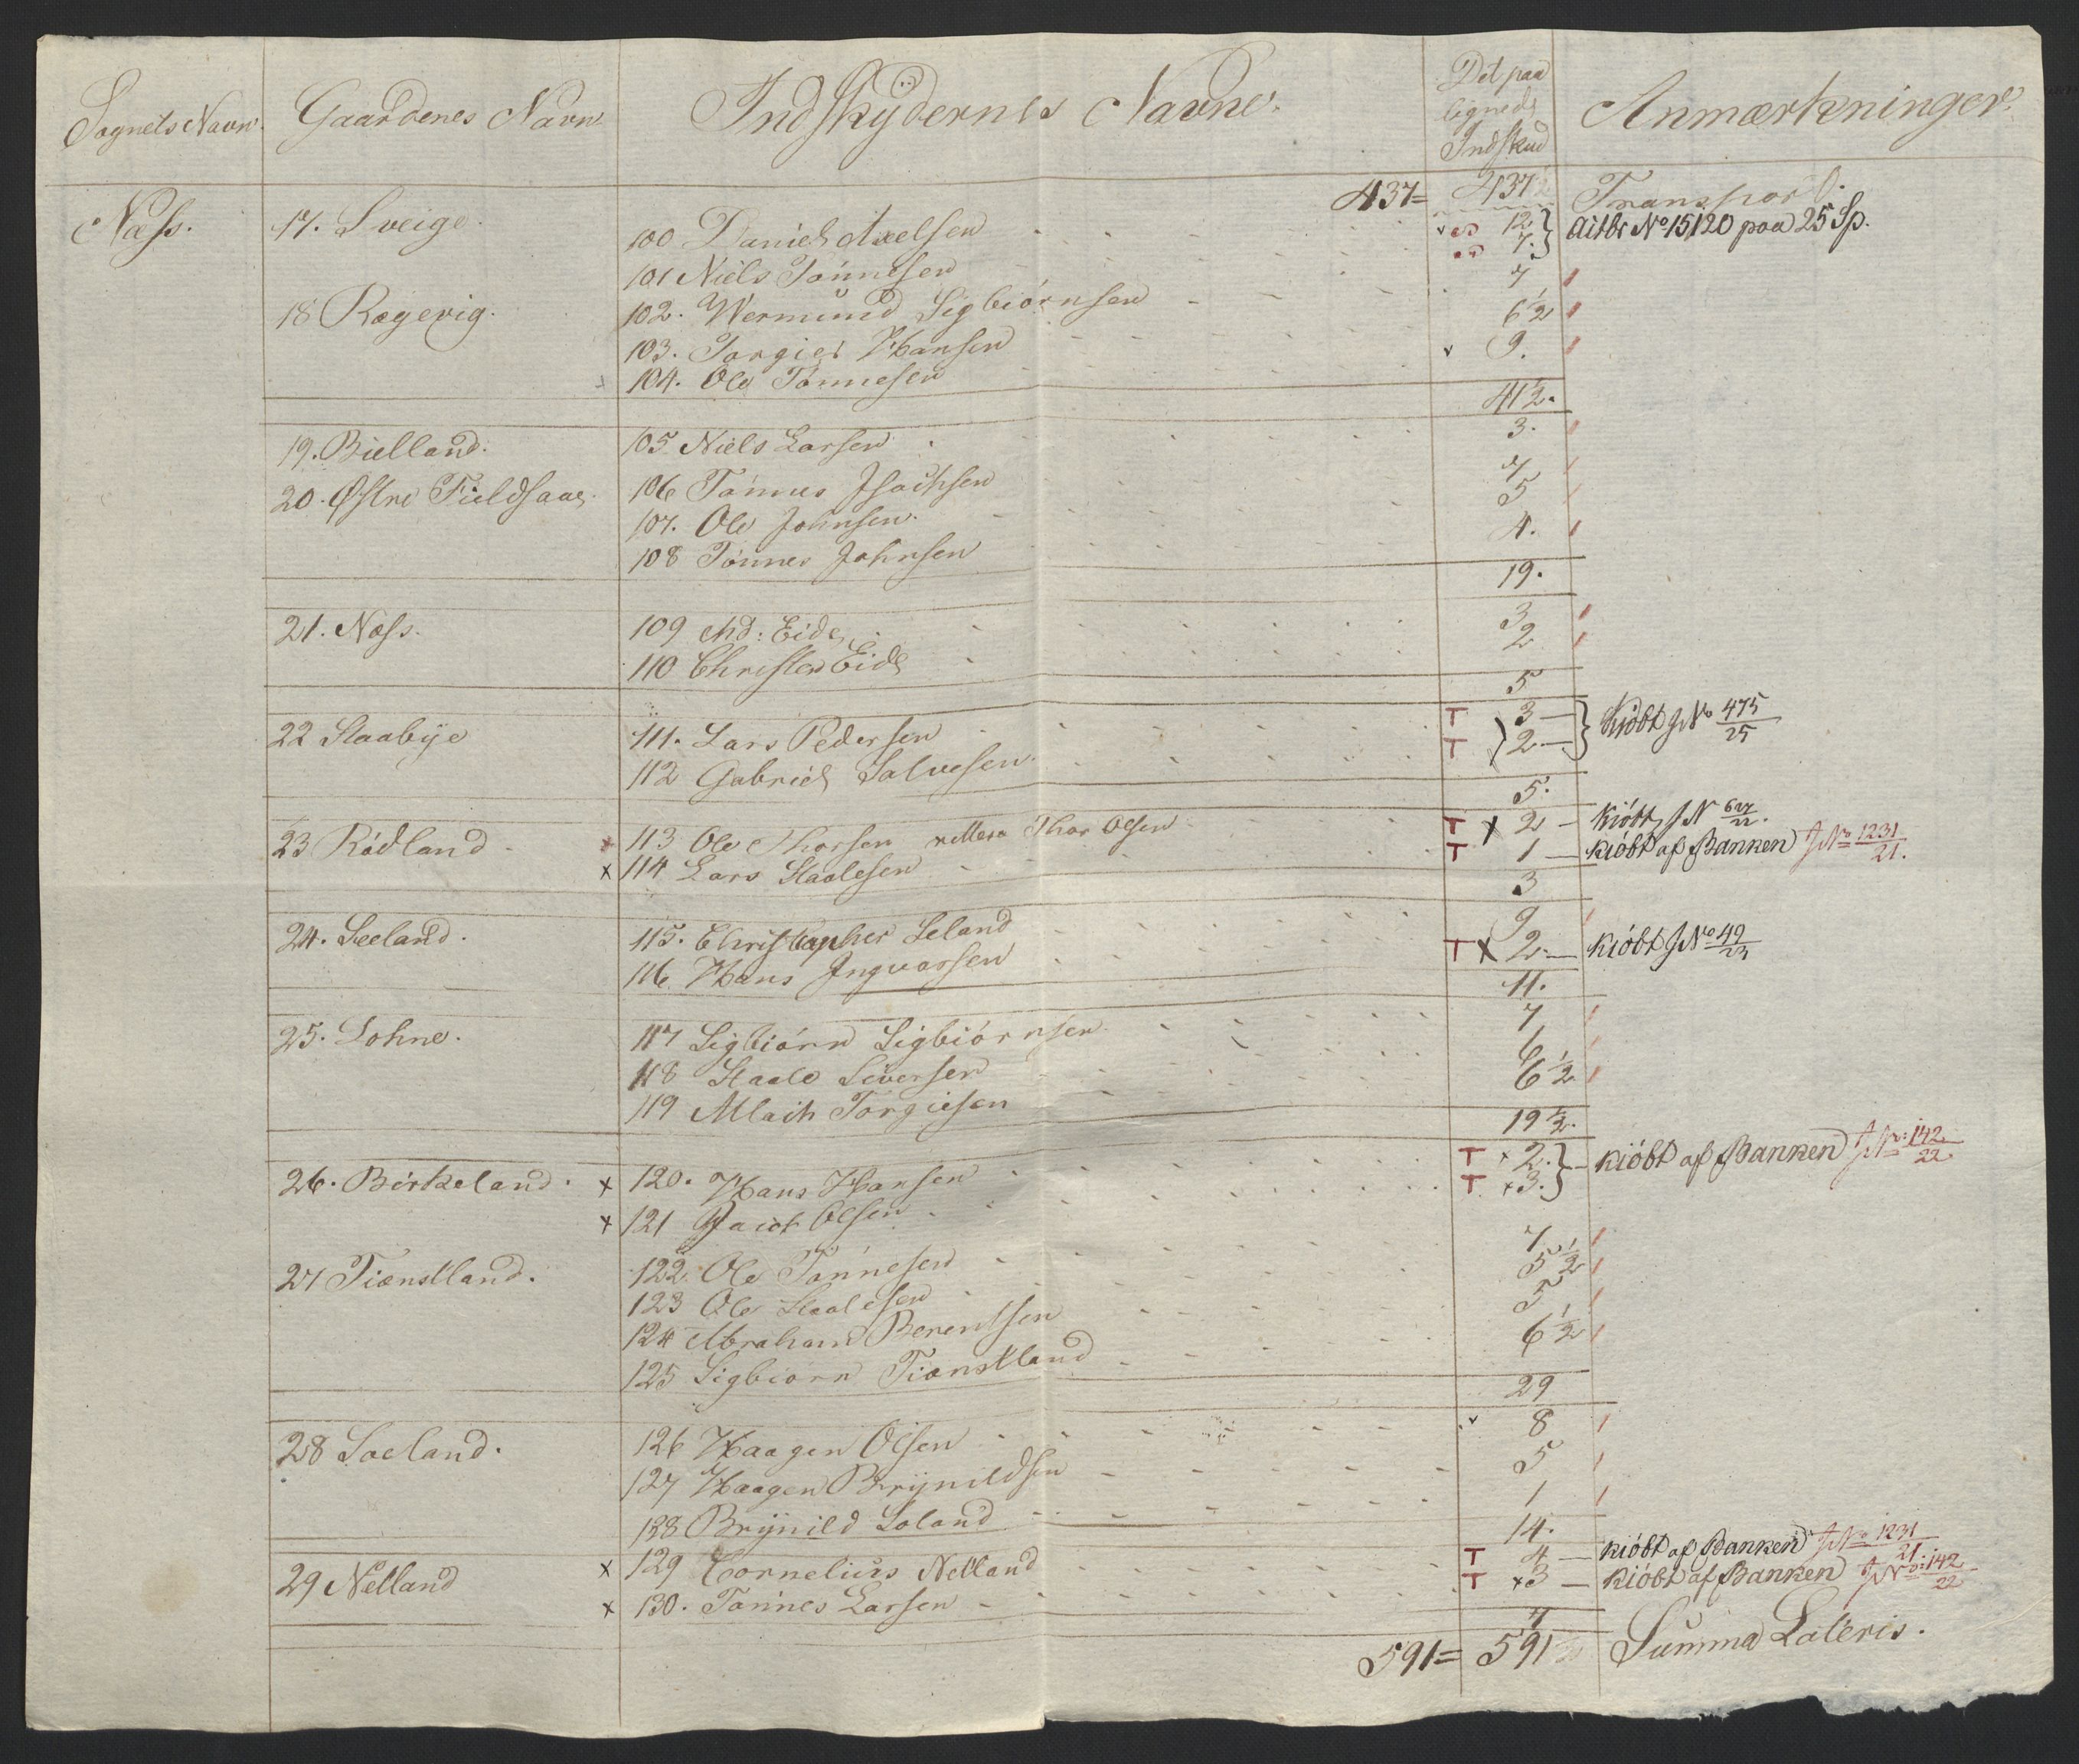 Sognets Navn. Gaardenes Navn. Indskydernes Navne. Det paa lignede Indskud Anmærkninger.
437= 437 Transport.
Næss. 17. Sveige. 100. Daniel Axelsen 12 } Aitbr No 15120 paa 25 Sp.
101 Niels Tönnesen 7. }
18 Rægevig. 102. Wermund Sigbiörnsen 7
103. Torgier Hansen 6 1/2
104. Ole Tönnesen v 9.
41 1/2.
19. Bielland. 105 Niels Larsen 3.
20. Østre Fieldsaae. 106 Tönnes Isachsen 7
107. Ole Johnsen. 5
108 Tönnes Johnsen 4.
19.
21. Næss. 109 Md: Eide 3
110 Christen Eide 2
5
22 Staabye 111. Lars Pedersen T 3 — } kiöbt J No 475/25
112 Gabriel Salvesen T 2. — }
5.
23 Rödland x 113 Ole Thorsen rettere Thor Olsen T x 2 — kiöbt J N 627/22.
x 114 Lars Staalesen T 1 — kiöbt af Banken J No 1231/21.
3
24. Seeland. 115. Christopher Seland 9
116 Hans Ingvorsen T x 2. — kiöbt J No 49/23
11.
25. Lohne. 117 Sigbiörn Sigbiörnsen 7
118 Staale Siversen 6
119 Mlaih Torgiesen 6 1/2
19 1/2.
26. Birkeland. x 120. Hans Hansen T x 2. } — kiöbt af Banken J No: 142/22.
x 121 Jacob Olsen T x 3. }
27 Tiönstland. 122. Ole Tönnesen 7
123 Ole Staalesen 5 1/2
124 Abraham Berentsen 5
125 Sigbiörn Tiönstland 6 1/2
29
28 Soeland. 126 Haagen Olsen v 8
127 Haagen Brynildsen 5
128 Brynild Soland 1
14.
29 Netland x 129 Cornelius Netland T 4 — kiöbt af Banken J No 1231/21.
x 130. Tönnes Larsen T x 3 — kiöbt af Banken J No: 142/22
7
591= 591 Summa Lateris.